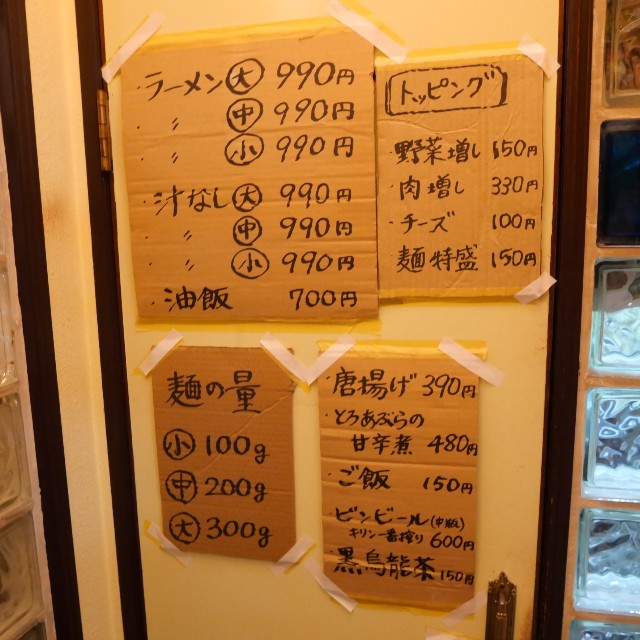 ・ラーメン 大 990円
・ 〃 中 990円
・ 〃 小 990円
・汁なし 大 990円
・ 〃 中 990円
・ 〃 小 990円
・油飯 700円
トッピング
・野菜増し 150円
・肉増し 330円
・チーズ 100円
・麺特盛 150円
麺の量
小 100g
中 200g
大 300g
・唐揚げ 390円
・とろあぶらの
甘辛煮 480円
・ご飯 150円
・ビンビール(中瓶)
キリン一番搾り 600円
・黒烏龍茶 150円